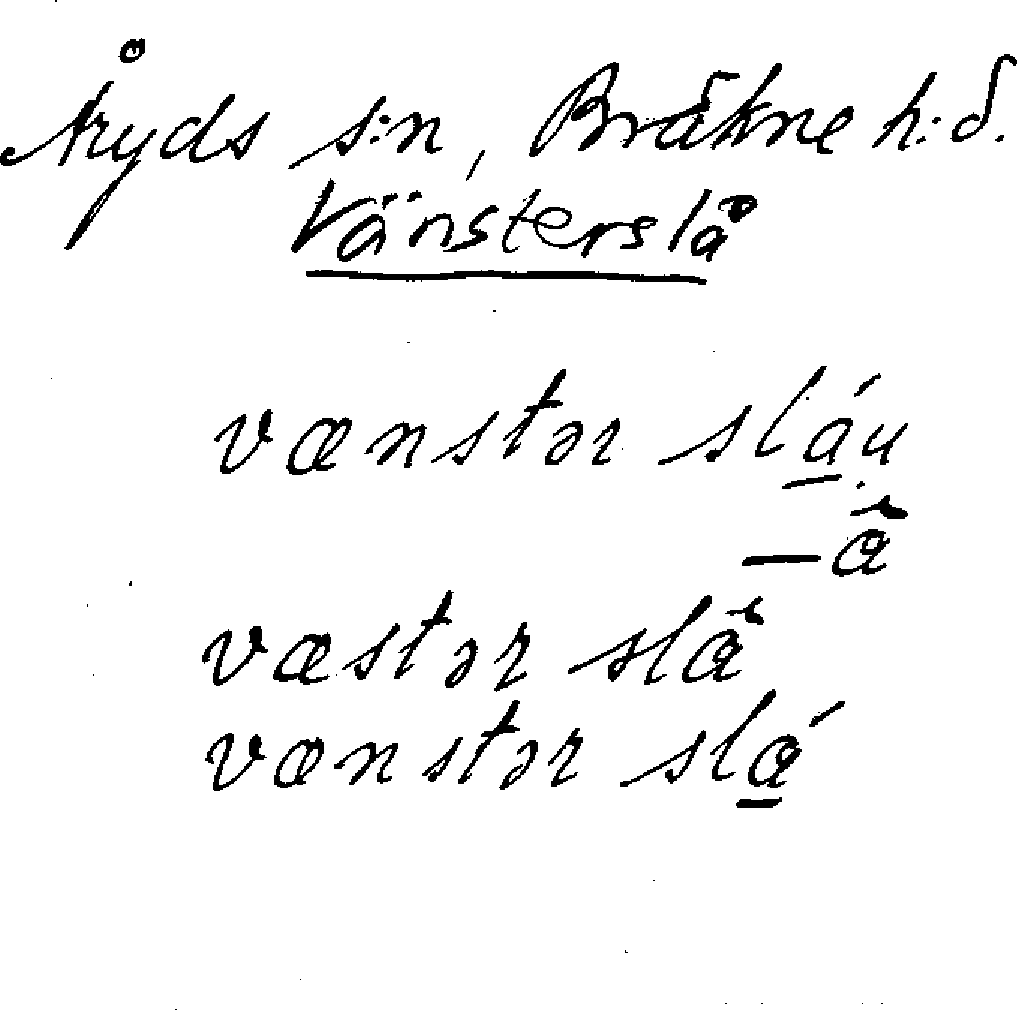 Åryds s:n, Bräkne h:d.
Vänsterslå
vænstər slá̱u
—â
væstər slâ
vænstər slá̱